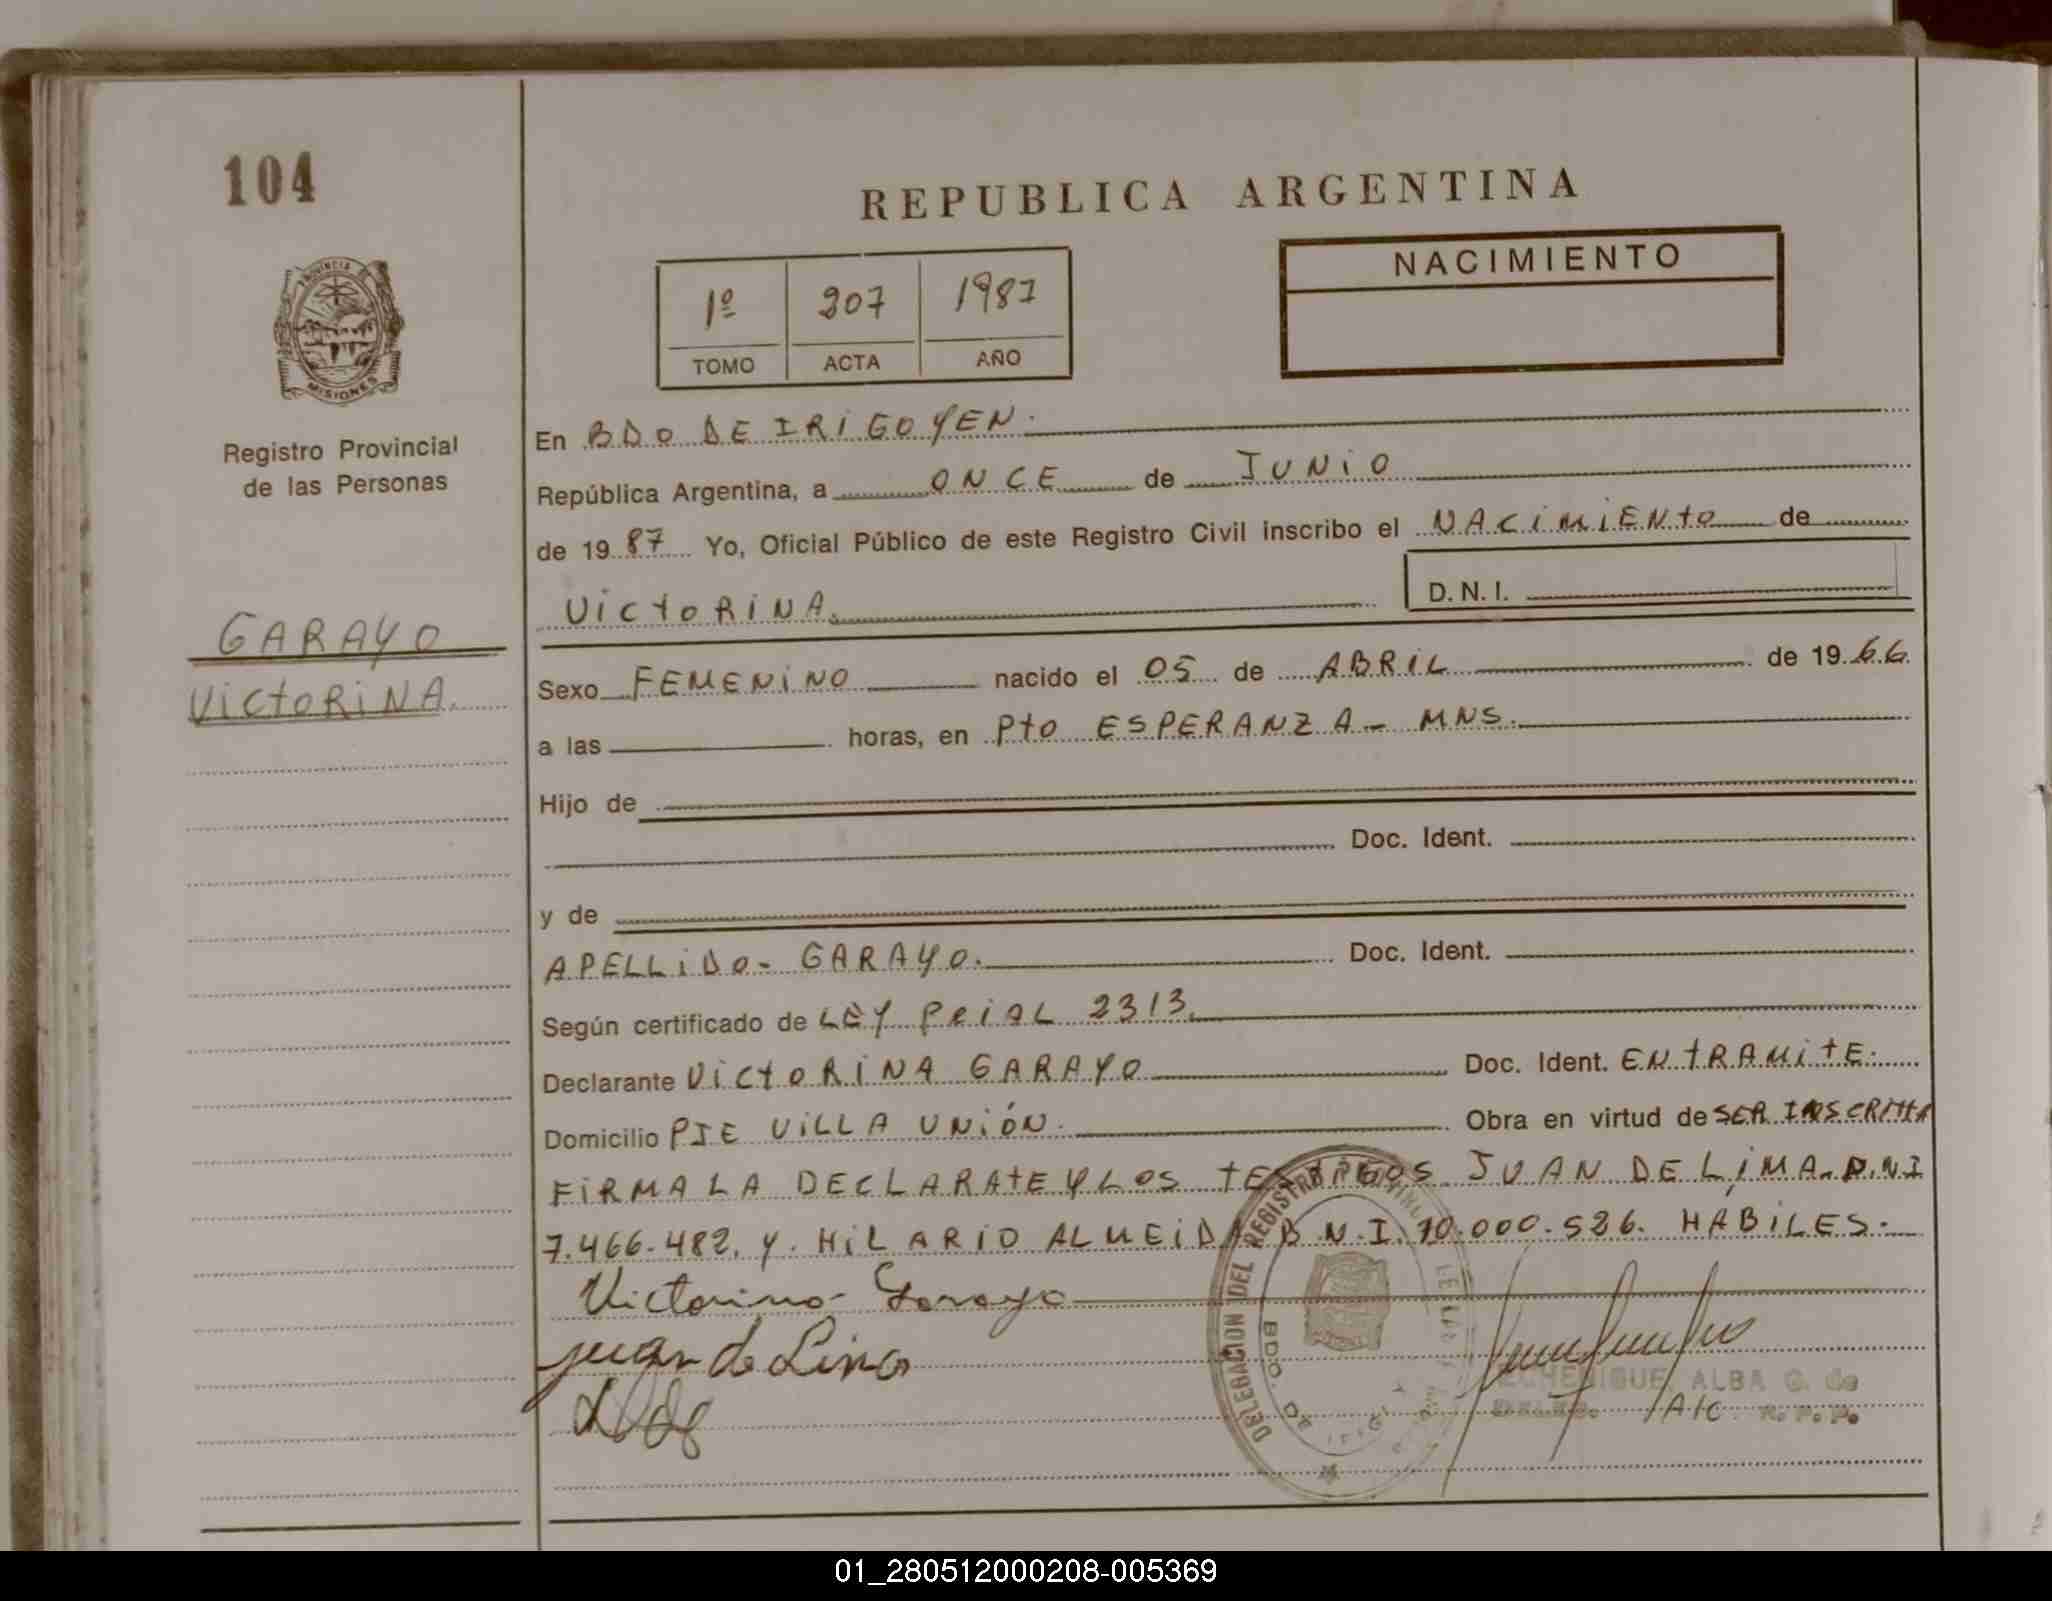 104
REPUBLICA ARGENTINA
PROVINCIA DE
MISIONES
Registro Provincial
de las Personas
GARAYO
VICTORINA.
1º 207 1987
TOMO ACTA AÑO
NACIMIENTO
En BDO DE IRIGOYEN.
República Argentina, a ONCE de JUNIO
de 1987 Yo, Oficial Público de este Registro Civil inscribo el NACIMIENTO de
VICTORINA.
D. N. I.
Sexo FEMENINO nacido el 05 de ABRIL de 1966.
a las horas, en Pto ESPERANZA - MNS.
Hijo de
Doc. Ident.
y de
APELLIDO - GARAYO. Doc. Ident.
Según certificado de LEY PCIAL 2313.
Declarante VICTORINA GARAYO Doc. Ident. EN TRAMITE.
Domicilio PJE VILLA UNIÓN. Obra en virtud de SER INSCRITTA
FIRMA LA DECLARATE Y LOS TESTIGOS JUAN DE LIMA - D.N.I
7.466.482. Y HILARIO ALMEIDA D.N.I. 10.000.526. HABILES.
Victorina Garayo
Juan de Lima
DELEGACION DEL REGISTRO PROVINCIAL
BDO. DE
ECHENIQUE, ALBA G. de
A/C R. P. P.
01_280512000208-005369